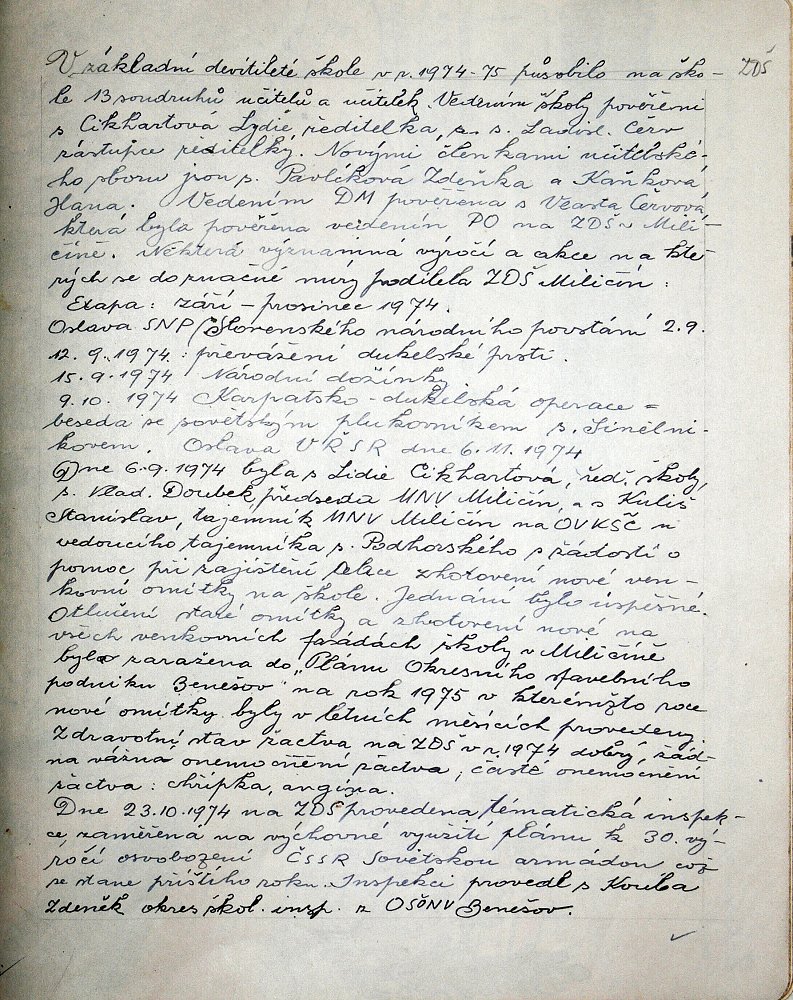 V základní devítileté škole v r. 1974-75 působilo na ško- ZDŠ
le 13 soudruhů učitelů a učitelek. Vedením školy pověřeni
s Cikhartová Lydie, ředitelka, a s. Ladisl. Červ
zástupce ředitelky. Novými členkami učitelské-
ho sboru jsou s. Pavlíková Zdeňka a Kaňková
Hana. Vedením DM pověřena s Vlasta Červová,
která byla pověřena vedením PO na ZDŠ v Mili-
číně. Některá významná výročí a akce na kte-
rých se do značné míry podílela ZDŠ Miličín:
Etapa: září - prosinec 1974.
Oslava SNP /Slovenského národního povstání 2.9.
12. 9. 1974: převážení dukelské prsti.
15. 9. 1974 Národní dožínky.
9. 10. 1974 Karpatsko-dukelská operace =
beseda se sovětským plukovníkem s. Sinělni-
kovem. Oslava VŘSR dne 6. 11. 1974
Dne 6. 9. 1974 byla s Lidie Cikhartová, řed. školy,
s. Vlad. Doubek, předseda MNV Miličín, a s Kuliš
Stanislav, tajemník MNV Miličín na OVKSČ u
vedoucího tajemníka s. Podhorského s žádostí o
pomoc při zajištění zhotovení nové ven-
kovní omítky na škole. Jednání bylo úspěšné.
Otlučení staré omítky a zhotovení nové na
všech venkovních fasádách školy v Miličíně
bylo zaražena do „Plánu Okresního stavebního
podniku Benešov" na rok 1975 v kterémžto roce
nové omítky byly v letních měsících provedeny.
Zdravotní stav žactva na ZDŠ v r. 1974 dobrý, žád-
na vážna onemocnění žactva, časté onemocnění
žactva: chřipka, angína.
Dne 23. 10. 1974 na ZDŠ provedena tématická inspek-
ce zaměřená na výchovné využití plánu k 30. vý-
ročí osvobození ČSSR Sovětskou armádou což
se stane příštího roku. Inspekci provedl s Kouba
Zdeněk okres. škol. insp. z OŠONV Benešov.